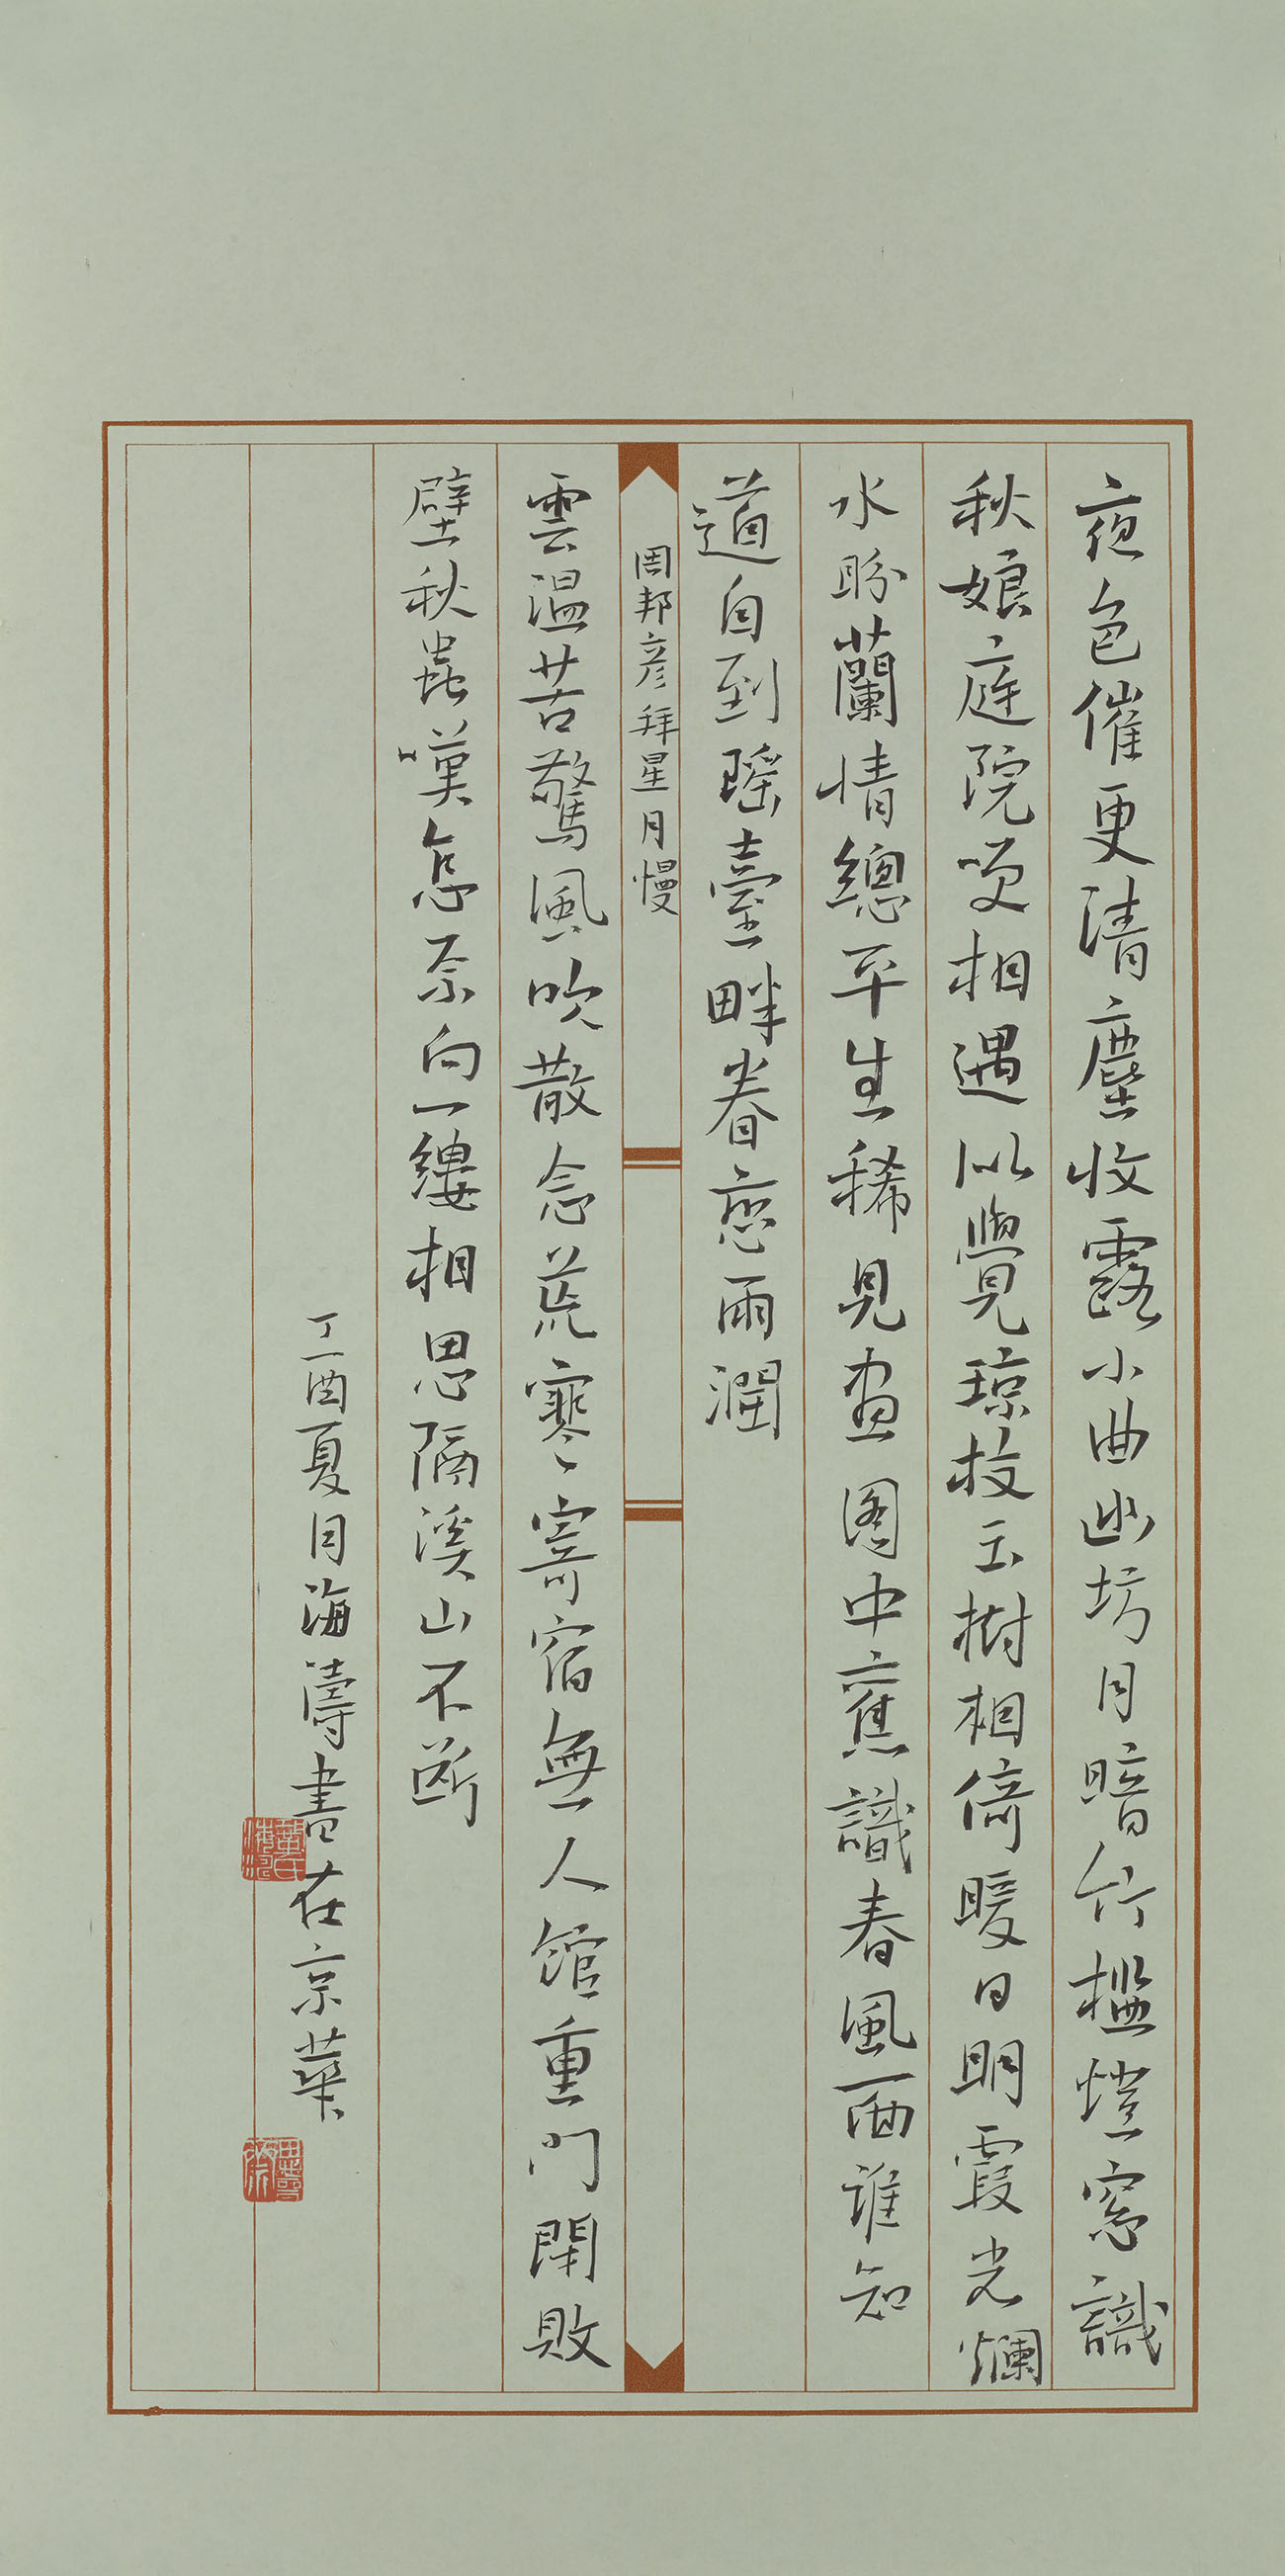 夜色催更清塵收露小曲幽坊月暗竹檻燈窓識
秋娘庭院笑相遇似覺瓊枝玉樹相倚暖日明霞光爛
水盼蘭情總平生稀見畫圖中舊識春風面誰知
道自到瑶臺畔眷戀雨潤
周邦彦拜星月慢
雲温苦驚風吹散念荒寒寄宿無人館重門閉敗
壁秋蟲嘆怎奈向一縷相思隔溪山不斷
丁酉夏月海濤書在京華